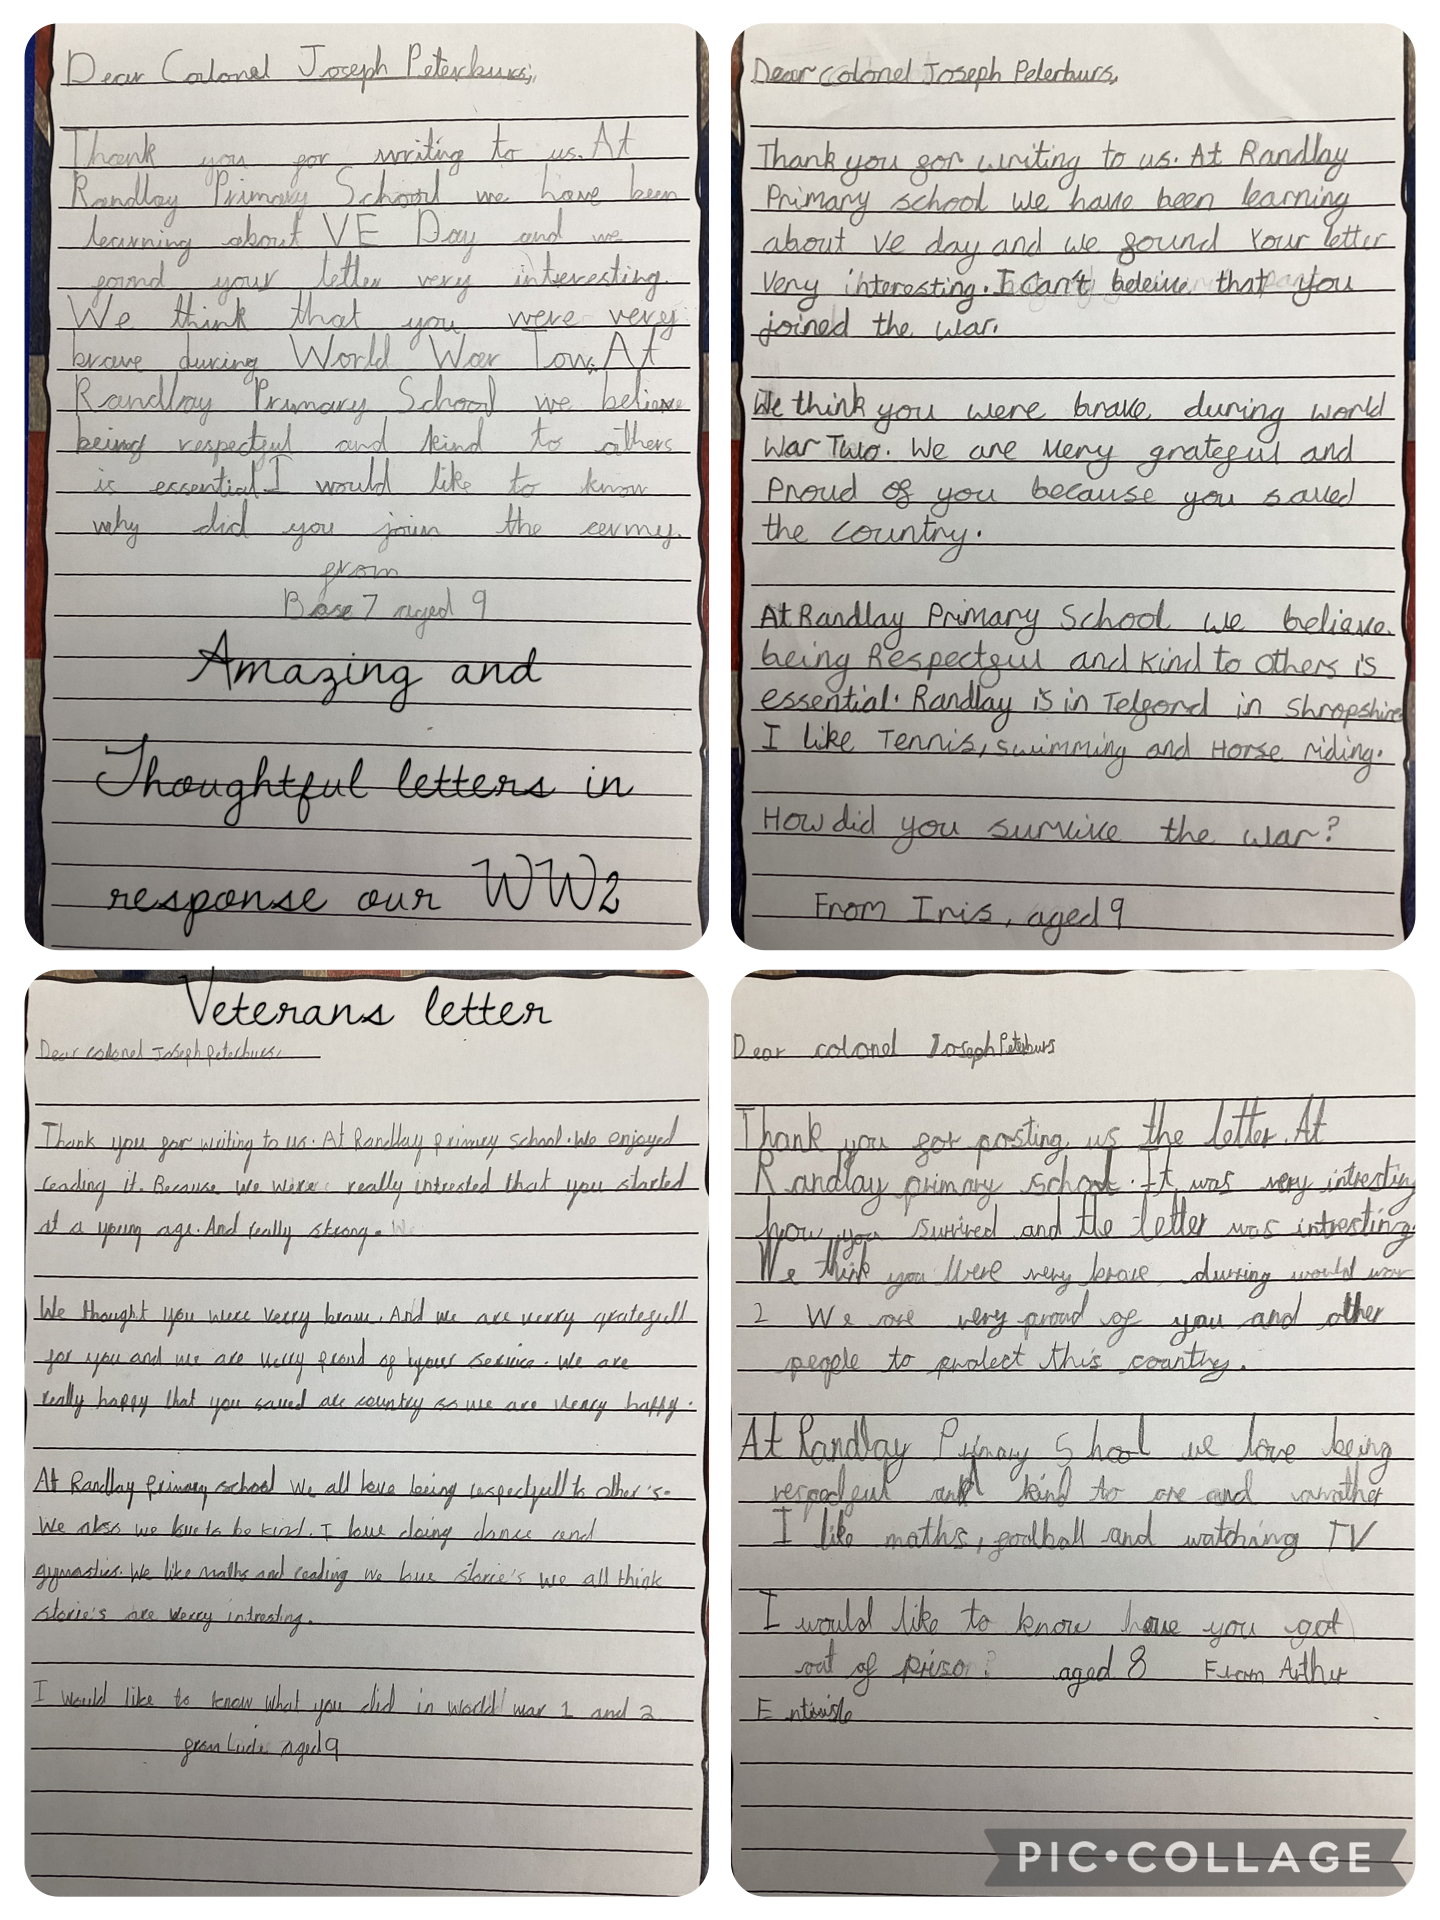 Dear Colonel Joseph Peterburs,
Thank you for writing to us. At
Randlay Primary School we have been
learning about VE Day and we
found your letter very interesting.
We think that you were very
brave during World War Tow. At
Randlay Primary School we believe
being respectful and kind to others
is essential. I would like to know
why did you join the army.
from
Base 7 aged 9
Amazing and
Thoughtful letters in
response our WW2
Dear colonel Joseph Peterburs,
Thank you for writing to us. At Randlay
Primary school we have been learning
about ve day and we found Your letter
very interesting. I can't beleive that you
joined the war.
We think you were brave during world
War Two. We are very grateful and
Proud of you because you saved
the country.
At Randlay Primary School we believe
being Respectful and kind to others is
essential. Randlay is in Telford in Shropshire
I like Tennis, swimming and Horse riding.
How did you survive the war?
From Iris, aged 9
Veterans letter
Dear colonel Joseph Peterburs,
Thank you for writing to us. At Randlay primey school. We enjoyed
reading it. Because we were really intrested that you started
at a young age. And really strong.
We thought you were verry brave. And we are verry gratefull
for you and we are verry proud of your service. We are
really happy that you saved are country so we are verry happy.
At Randlay primary school we all love being respectfull to other's.
We also we love to be kind. I love doing dance and
gymnastics. We like maths and reading we love storie's we all think
storie's are verry intresting.
I would like to know what you did in world war 1 and 2
from aged 9
Dear colonel Joseph Peterburs
Thank you for posting us the letter. At
Randlay primary school. It was very intresting
how you survived and the letter was intresting.
We think you Were very brave during would war
2 We are very proud of you and other
people to protect this country.
At Randlay Primary School we love being
and kind to one and
I like maths, football and watching TV
I would like to know have you got
out of prison? aged 8 From Arthur